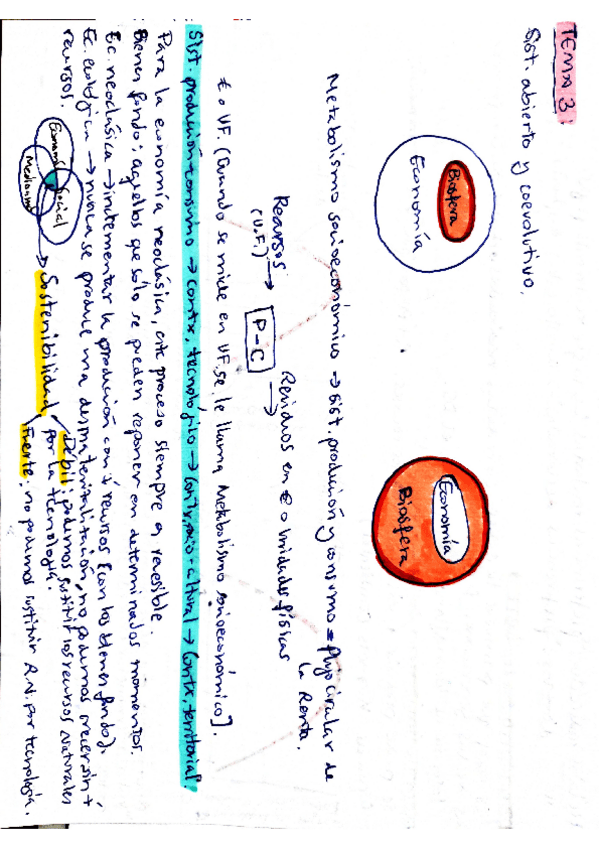 TEMA 3:
Sist. abierto y coevolutivo.
Biosfera
Economía
Economía
Biosfera
Metabolismo socioeconómico → sist. producción y consumo = flujo circular de
la Renta.
Recursos → P-C → Residuos en € o unidades físicas
(U.F.)
€ o UF. (Cuando se mide en UF se le llama Metabolismo socioeconómico].
Sist. producción-consumo → contx. tecnológico → Contx. socio-cultural → Contx. territorial.
Para la economía neoclásica, este proceso siempre es reversible.
Bienes fondo: aquellos que sólo se pueden reponer en determinados momentos.
Ec. neoclásica → incrementar la producción con ↓ recursos (con los bienes fondo).
Ec. ecológica → nunca se produce una desmaterialización, no podemos crecer sin ↑
recursos.
Economía
Social
Medioamb
→ Sostenibilidad
Débil: podemos sustituir los recursos naturales
por la tecnología.
Fuerte: no podemos sustituir R.N. por tecnología.